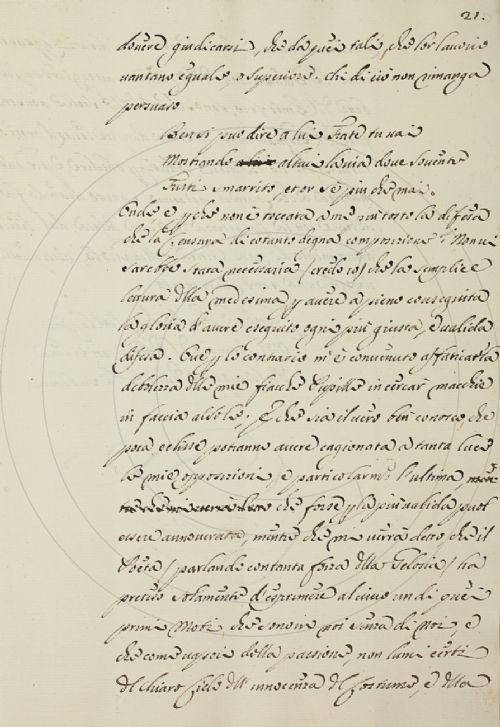 21.
douere giudicarsi, che da quei tali, che lor lauorio
uantano eguale, o superiore. chi di ciò non rimanga
persuaso
Ben si può dire a lui Frate tu uai
Mostrando altrui la uia doue souente
Fosti smarrito, et or se' più che mai.
Onde e pche non è toccata a me più tosto la difesa
che la Censura di cotanto degna composizione? Non ui
sarebbe stata necessaria (credo io) che la semplice
lettura dlla medesima p auere a pieno conseguita
la gloria d'auere eseguito ogni più giusta, e ualida
difesa. Oue p lo contrario m'è conuenuto affaticar la
debolezza dlle mie fiacche Pupille in cercar macchie
in faccia al sole; E che sia il uero ben conosco, che
poca eclisse potranno auere cagionata a tanta luce
le mie opposizioni, e particolarmte l'ultima
che forse p la più ualida puol
essere annouerata, mentre che mi uerrà detto, che il
Poeta (parlando con tanta forza dlla Gelosia) ha
preteso solamente d'esprimere al uiuo un di quei
primi Moti, che sono in noi senza di Noi, e
che come uapori della passione, non lumi certi
dl chiaro Cielo dll'innocenza dl costume, e dlla